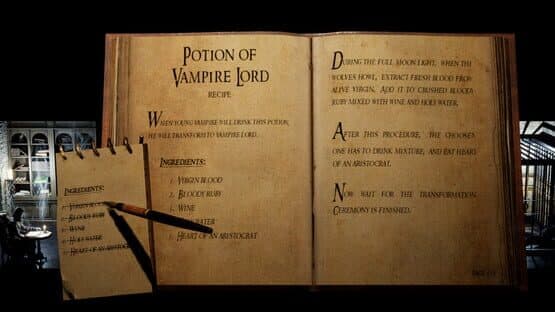 POTION OF
VAMPIRE LORD
RECIPE
WHEN YOUNG VAMPIRE WILL DRINK THIS POTION,
HE WILL TRANSFORM TO VAMPIRE LORD.
INGREDIENTS:
1. VIRGIN BLOOD
2. BLOODY RUBY
3. WINE
WATER
5. HEART OF AN ARISTOCRAT
DURING THE FULL MOON LIGHT, WHEN THE
WOLVES HOWL, EXTRACT FRESH BLOOD FROM
ALIVE VIRGIN. ADD IT TO CRUSHED BLOODY
RUBY MIXED WITH WINE AND HOLY WATER.
AFTER THIS PROCEDURE, THE CHOOSEN
ONE HAS TO DRINK MIXTURE, AND EAT HEART
OF AN ARISTOCRAT.
NOW WAIT FOR THE TRANSFORMATION.
CEREMONY IS FINISHED.
PAGE
INGREDIENTS:
1. VIRGIN BLOOD
2. BLOODY RUBY
3. WINE
4. HOLY WATER
5. HEART OF AN ARISTOCRAT